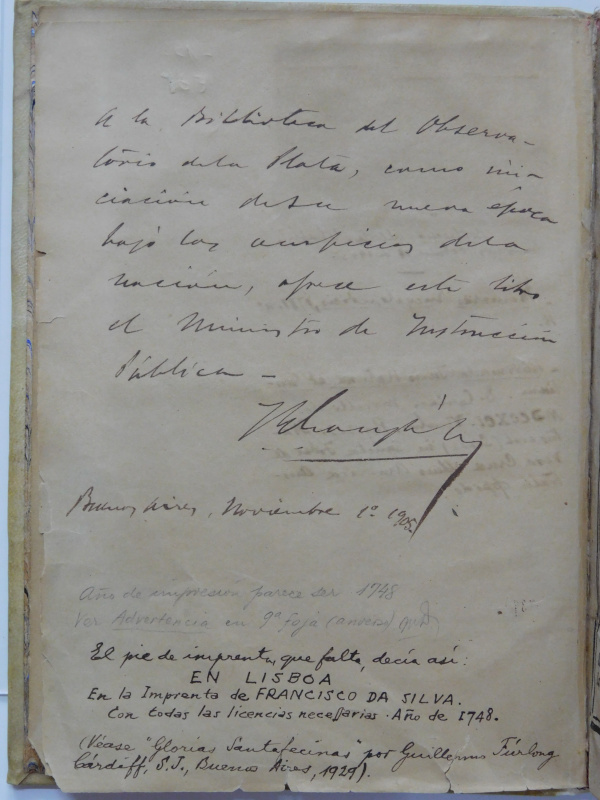 A la Biblioteca del Observa-
torio de la Plata, como ini-
ciación de su nueva época
bajo los auspicios de la
nación, ofrece este libro
el Ministro de Instrucción
Pública —
Buenos Aires, Noviembre 1º 1905
Año de impresión parece ser 1748
Ver Advertencia en 9ª foja (anverso)
El pie de imprenta, que falta, decía así:
EN LISBOA
En la Imprenta de FRANCISCO DA SILVA.
Con todas las licencias neceſſarias. Año de 1748.
(Véase "Glorias Santafecinas" por Guillermo Fúrlong
Cárdiff, S.J., Buenos Aires, 1929).